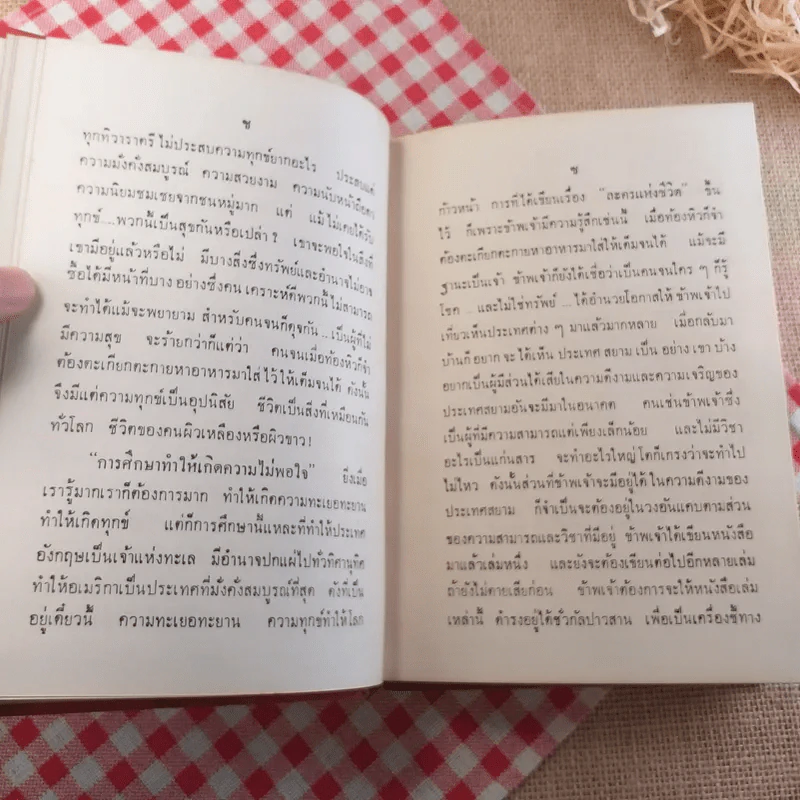 ช
ทุกทิวาราตรี ไม่ประสบความทุกข์ยากอะไร ประสบแต่
ความมั่งคั่งสมบูรณ์ ความสวยงาม ความนับหน้าถือตา
ความนิยมชมเชยจากชนหมู่มาก แต่ แม้ไม่เคยได้รับ
ทุกข์...พวกนี้เป็นสุขกันหรือเปล่า? เขาจะพอใจในสิ่งที่
เขามีอยู่แล้วหรือไม่ มีบางสิ่งซึ่งทรัพย์และอำนาจไม่อาจ
ซื้อได้มีหน้าที่บาง อย่างซึ่งคน เคราะห์ดีพวกนี้ไม่สามารถ
จะทำได้แม้จะพยายาม สำหรับคนจนก็ดุจกัน... เป็นผู้ที่ไม่
มีความสุข จะร้ายกว่าก็แต่ว่า คนจนเมื่อท้องหิวก็จำ
ต้องตะเกียกตะกายหาอาหารมาใส่ ไว้ ให้เต็มจนได้ ดังนั้น
จึงมีแต่ความทุกข์เป็นอุปนิสัย ชีวิตเป็นสิ่งที่เหมือนกัน
ทั่วโลก ชีวิตของคนผิวเหลืองหรือผิวขาว!
“การศึกษาทำให้เกิดความไม่พอใจ” ยิ่งเมื่อ
เรารู้มากเราก็ต้องการมาก ทำให้เกิดความทะเยอทะยาน
ทำให้เกิดทุกข์ แต่ก็การศึกษานี้แหละที่ทำให้ประเทศ
อังกฤษเป็นเจ้าแห่งทะเล มีอำนาจปกแผ่ไปทั่วทิศานุทิศ
ทำให้อเมริกาเป็นประเทศที่มั่งคั่งสมบูรณ์ที่สุด ดังที่เป็น
อยู่เดี๋ยวนี้ ความทะเยอทะยาน ความทุกข์ทำให้โลก
ซ
ก้าวหน้า การที่ได้เขียนเรื่อง “ละครแห่งชีวิต” ขึ้น
ไว้ ก็เพราะข้าพเจ้ามีความรู้สึกเช่นนี้ เมื่อท้องหิวก็จำ
ต้องตะเกียกตะกายหาอาหารมาใส่ให้เต็มจนได้ แม้จะมี
ฐานะเป็นเจ้า ข้าพเจ้าก็ยังได้เชื่อว่าเป็นคนจนใคร ๆ ก็รู้
โชค ..และไม่ใช่ทรัพย์ ... ได้อำนวยโอกาสให้ ข้าพเจ้าไป
เที่ยวเห็นประเทศต่าง ๆ มาแล้วมากหลาย เมื่อกลับมา
บ้านก็ อยาก จะ ได้เห็น ประเทศ สยาม เป็น อย่าง เขา บ้าง
อยากเป็นผู้มีส่วนได้เสียในความดีงามและความเจริญของ
ประเทศสยามอันจะมีมาในอนาคต คนเช่นข้าพเจ้าซึ่ง
เป็นผู้ที่มีความสามารถแต่เพียงเล็กน้อย และไม่มีวิชา
อะไรเป็นแก่นสาร จะทำอะไรใหญ่โตก็เกรงว่าจะทำไป
ไม่ไหว ดังนั้นส่วนที่ข้าพเจ้าจะมีอยู่ได้ ในความดีงามของ
ประเทศสยาม ก็จำเป็นจะต้องอยู่ในวงอันแคบตามส่วน
ของความสามารถและวิชาที่มีอยู่ ข้าพเจ้าได้เขียนหนังสือ
มาแล้วเล่มหนึ่ง และยังจะต้องเขียนต่อไปอีกหลายเล่ม
ถ้ายังไม่ตายเสียก่อน ข้าพเจ้าต้องการจะให้หนังสือเล่ม
เหล่านี้ ดำรงอยู่ได้ชั่วกัลปาวสาน เพื่อเป็นเครื่องชี้ทาง